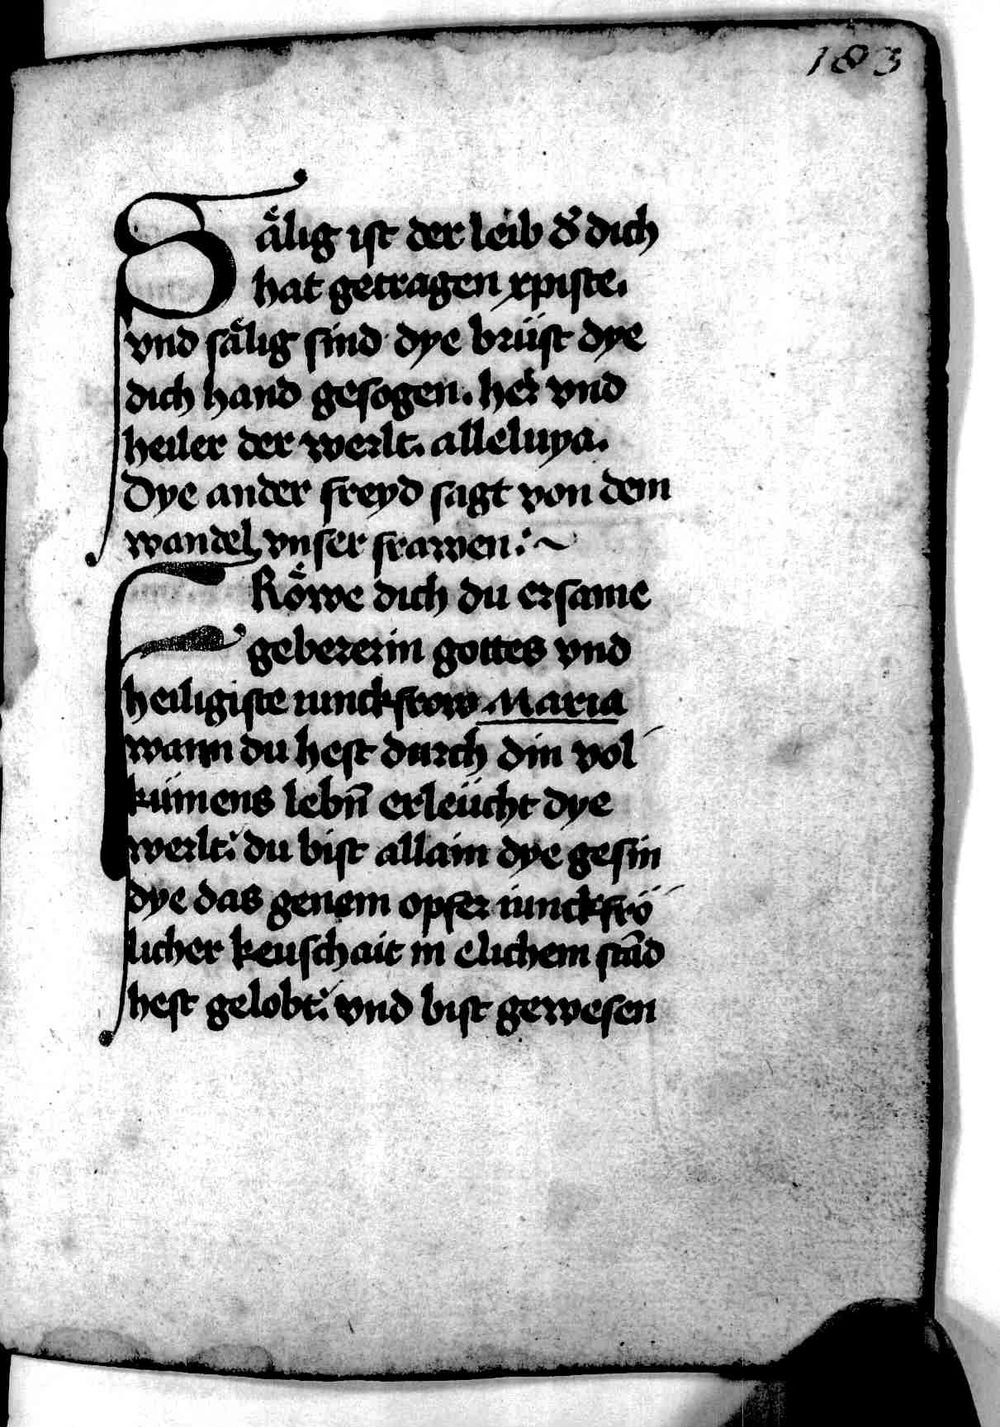 183
Sälig ist der leib d' dich
hat getragen xpiste.
vnd sälig sind dye brüst dye
dich hand gesogen. her vnd
heiler der werlt. alleluya.
Dye ander freyd sagt von dem
wandel vnser frawen :~
FRöwe dich du ersame
gebererin gottes vnd
heiligiste iunckfrow Maria
wann du hest durch din vol
kümens lebn̄ erleücht dye
werlt: du bist allain dye gesin
dye das genem opfer iunckfrö
licher keuschait in elichem stād
hest gelobt: vnd bist gewesen